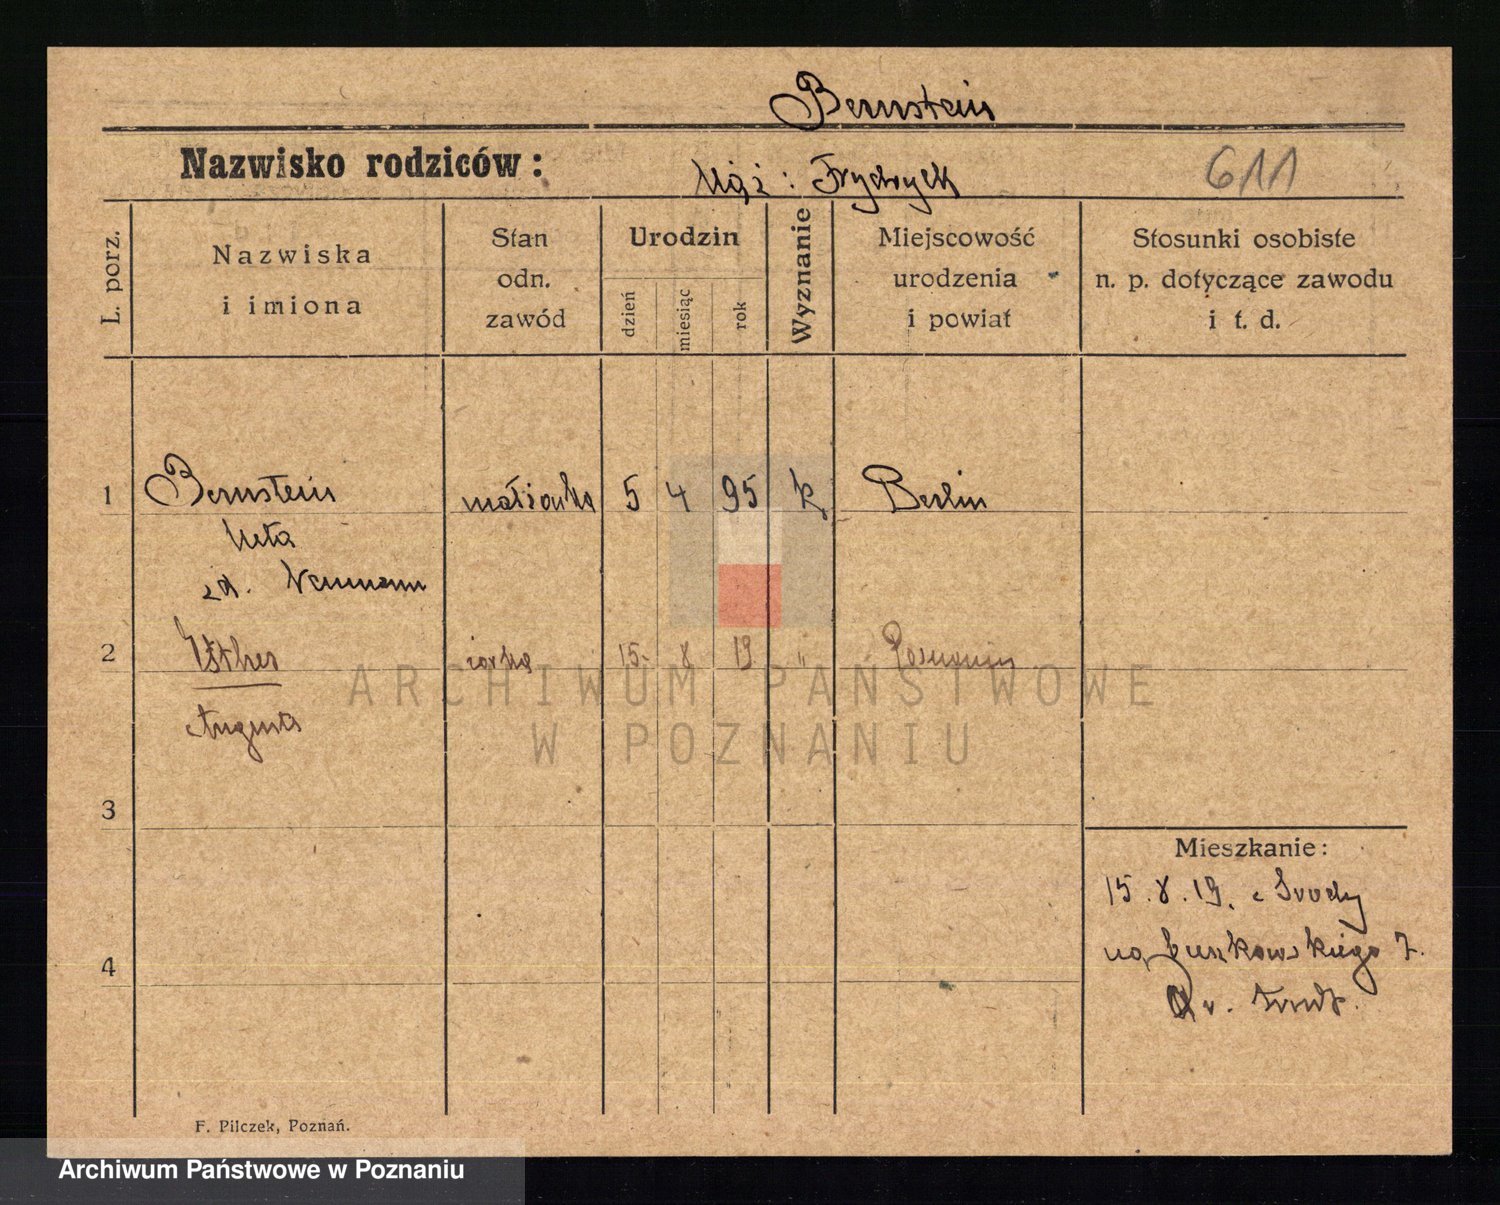 Bernstein
Nazwisko rodziców:
Mąż: Frydryck
611
L. porz.
Nazwiska
i imiona
Stan
odn.
zawód
Urodzin
dzień
miesiąc
rok
Wyznanie
Miejscowość
urodzenia
i powiat
Stosunki osobiste
n. p. dotyczące zawodu
i t. d.
1 Bernstein małżonka 5 4 95 k Berlin
Meta
zd. Neumann
2 Esther córka 15. 8 19 " Poznaniu
Augusta
ARCHIWUM PAŃSTWOWE
W POZNANIU
3
Mieszkanie:
15.8.19. z Środy
4
7.
F. Pilczek, Poznań.
Archiwum Państwowe w Poznaniu